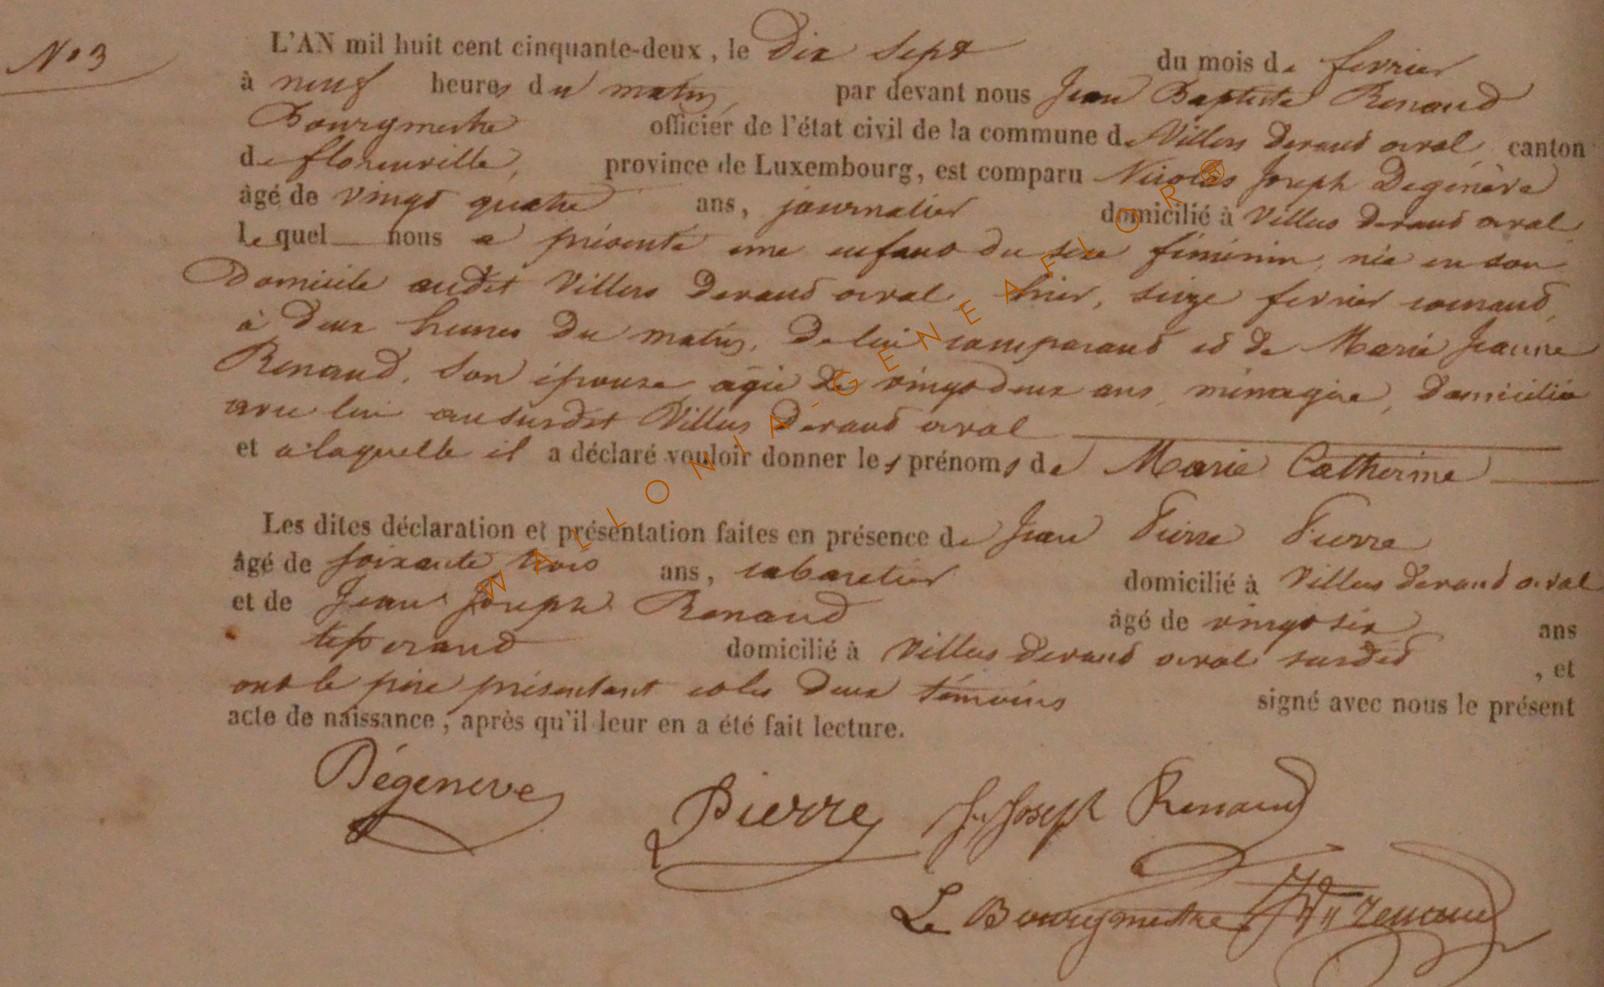 N° 3
L'AN mil huit cent cinquante-deux, le Dix Sept du mois de fevrier
à neuf heures du matin, par devant nous Jean Baptiste Renaud
Bourgmestre officier de l'état civil de la commune de Villers devant orval, canton
de florenville, province de Luxembourg, est comparu Nicolas Joseph Degenève
âgé de vingt quatre ans, journalier domicilié à Villers devant orval
lequel nous a présenté une enfant du sexe féminin, née en son
Domicile audit Villers devant orval, hier, seize fevrier courant,
à deux heures du matin, de lui comparant et de Marie Jeanne
Renaud, son épouse agée de vingt deux ans, ménagère, domiciliée
avec lui au susdit Villers devant orval
et a laquelle il a déclaré vouloir donner les prénoms de Marie Catherine
Les dites déclaration et présentation faites en présence de Jean Pierre Pierre
âgé de soixante trois ans, cabaretier domicilié à Villers devant orval
et de Jean Joseph Renaud âgé de vingt six ans
tisserand domicilié à Villers devant orval susdit, et
ont le père présentant et les deux témoins signé avec nous le présent
acte de naissance, après qu'il leur en a été fait lecture.
Dégeneve Pierre J. Joseph Renaud
Le Bourgmestre renaud
WALLONIA-GENEAFLOR®